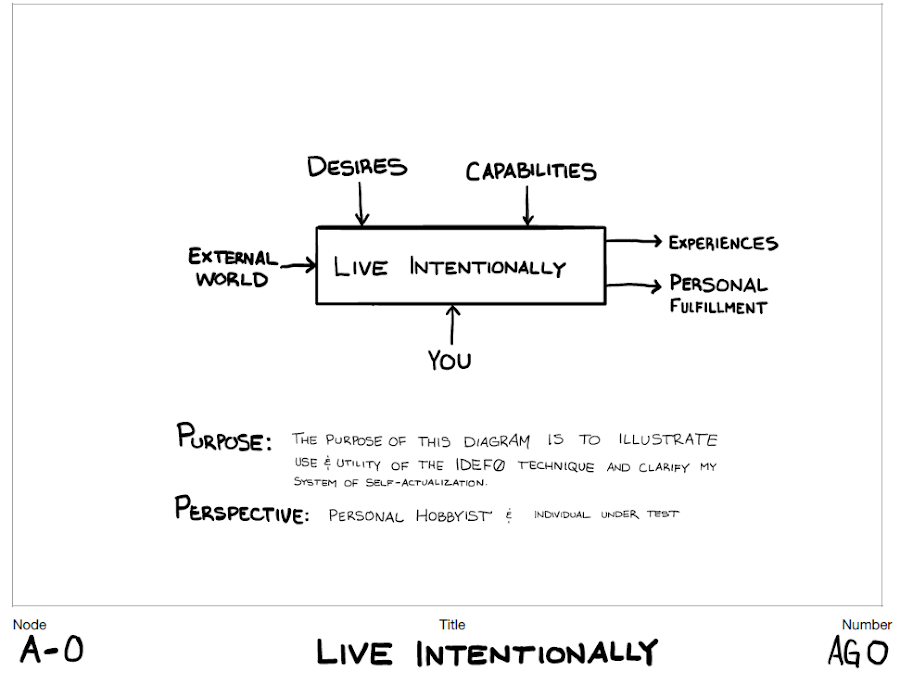 DESIRES
CAPABILITIES
EXTERNAL
WORLD
LIVE INTENTIONALLY
EXPERIENCES
PERSONAL
FULFILLMENT
YOU
PURPOSE: THE PURPOSE OF THIS DIAGRAM IS TO ILLUSTRATE
USE & UTILITY OF THE IDEFØ TECHNIQUE AND CLARIFY MY
SYSTEM OF SELF-ACTUALIZATION.
PERSPECTIVE: PERSONAL HOBBYIST & INDIVIDUAL UNDER TEST
Node Title Number
A-0 LIVE INTENTIONALLY AG0